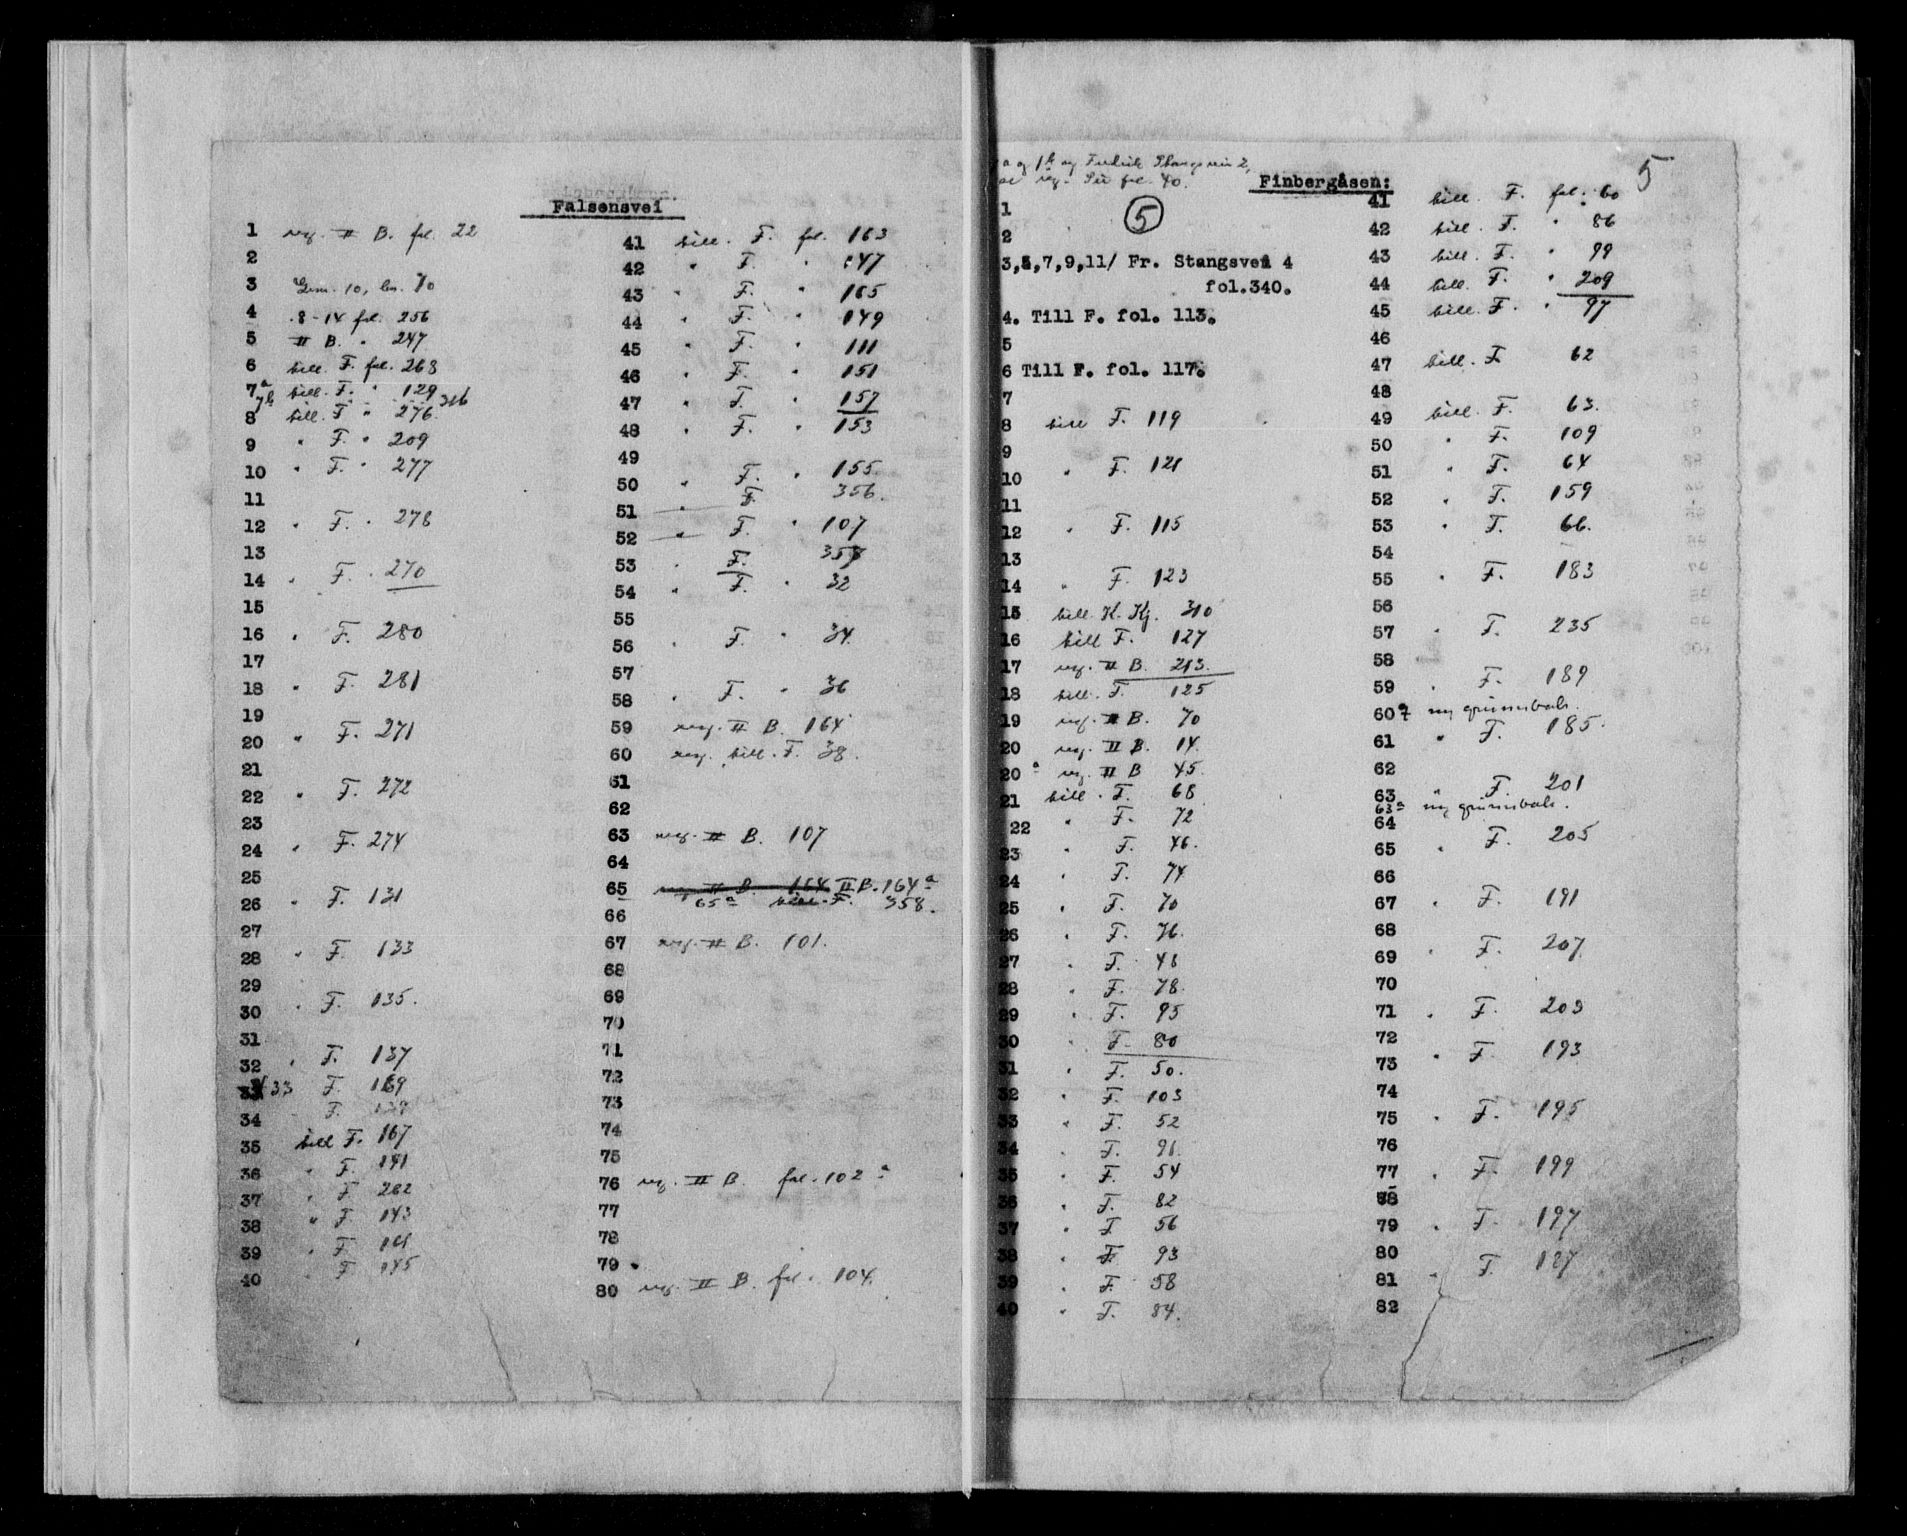 Falsensvei
1 reg. II B. fol. 22
2
3 Grn. 10, bn. 70
4 8-14 fol. 256
5 II B. " 247
6 till. F. fol. 268
7a till. F. " 129
7b 316
8 till. F " 276
9 " F. " 209
10 " F. " 277
11
12 " F. " 278
13
14 " F. " 270
15
16 " F. 280
17
18 " F. 281
19
20 " F. 271
21
22 " F. 272
23
24 " F. 274
25
26 " F. 131
27
28 " F. 133
29
30 " F. 135.
31
32 " F. 137
33 F. 169
34 F. 139
35 till F. 167
36 " F. 141
37 " F 262
38 " F. 143
39 " F 161
40 " F 145
41 till. F. fol. 163
42 " F. " 147
43 " F. " 165
44 " F. " 149
45 " F. " 111
46 " F. " 151
47 " F. " 157
48 " F. " 153
49
50 " F. " 155
51 " F. 356.
52 " F. " 107
53 " F. 357
54 " F. " 32
55
56 " F. " 34
57
58 " F. " 36
59 reg. II B. 164
60 reg. till. F. 38.
61
62
63 reg. II B. 107
64
65 reg. II B. 164 II B. 164a
65a till. F. 358.
66
67 reg. II B. 101.
68
69
70
71
72
73
74
75
76 reg. II B. fol. 102a
77
78
79
80 reg. II B. fol. 104.
a og 1b og Fredrik Stangs vei 2,
reg. Se fol. 40.
5
Finbergåsen:
5
1
2
3,5,7,9,11/ Fr. Stangsvei 4
fol.340.
4. Till F. fol. 113.
5
6 Till F. fol. 117.
7
8 till F. 119
9
10 " F. 121
11
12 " F. 115
13
14 " F. 123
15 till. K. Kj. 310
16 till F. 127
17 reg. II B. 213.
18 till. F. 125
19 reg. II B. 70
20 reg. II B. 14.
20a reg. II B 45.
21 till. F. 68
22 " F. 72
23 " F. 46.
24 " F. 74
25 " F. 70
26 " F. 76.
27 " F. 48
28 " F. 78.
29 " F. 95
30 " F. 80
31 " F. 50.
32 " F. 103
33 " F. 52
34 " F. 91.
35 " F. 54
36 " F. 82
37 " F 56
38 " F 93
39 " F. 58
40 " F. 84.
41 till. F. fol. 60
42 till. F. " 86
43 till. F. " 99
44 till. F. " 209
45 till. F. " 97
46
47 till. F. 62
48
49 till. F. 63.
50 " F. 109
51 " F. 64
52 " F. 159
53 " F. 66.
54
55 " F. 183
56
57 " F. 235
58
59 " F. 189
60 ny grunnbok.
61 " F. 185.
62
63 " F. 201
63a ny grunnbok.
64
65 " F. 205
66
67 " F. 191
68
69 " F. 207
70
71 " F. 203
72
73 " F. 193
74
75 " F. 195
76
77 " F. 199
78
79 " F. 197
80
81 " F. 187
82